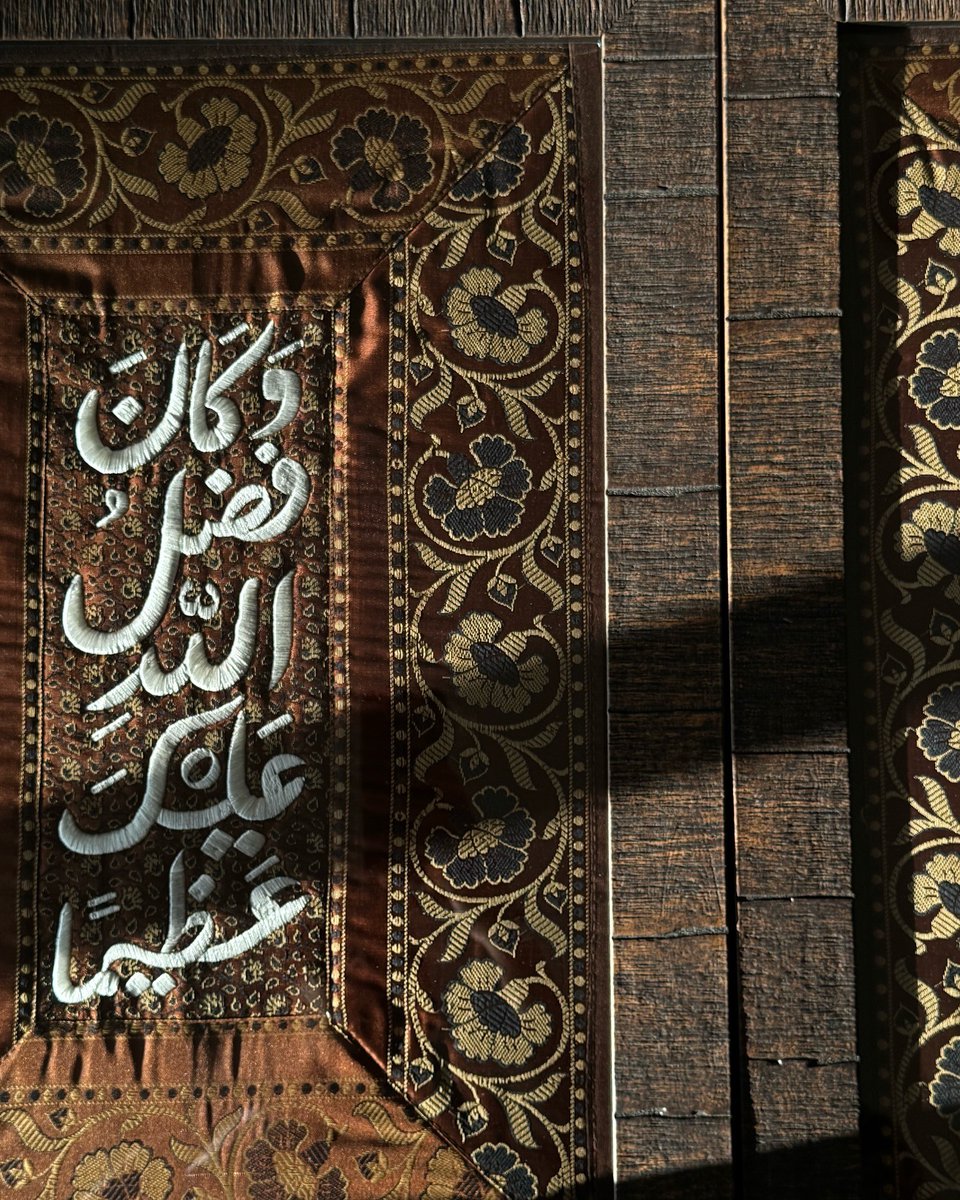 وَكَانَ
فَضْلُ
اللّٰهِ
عَلَيْكَ
عَظِيمًا